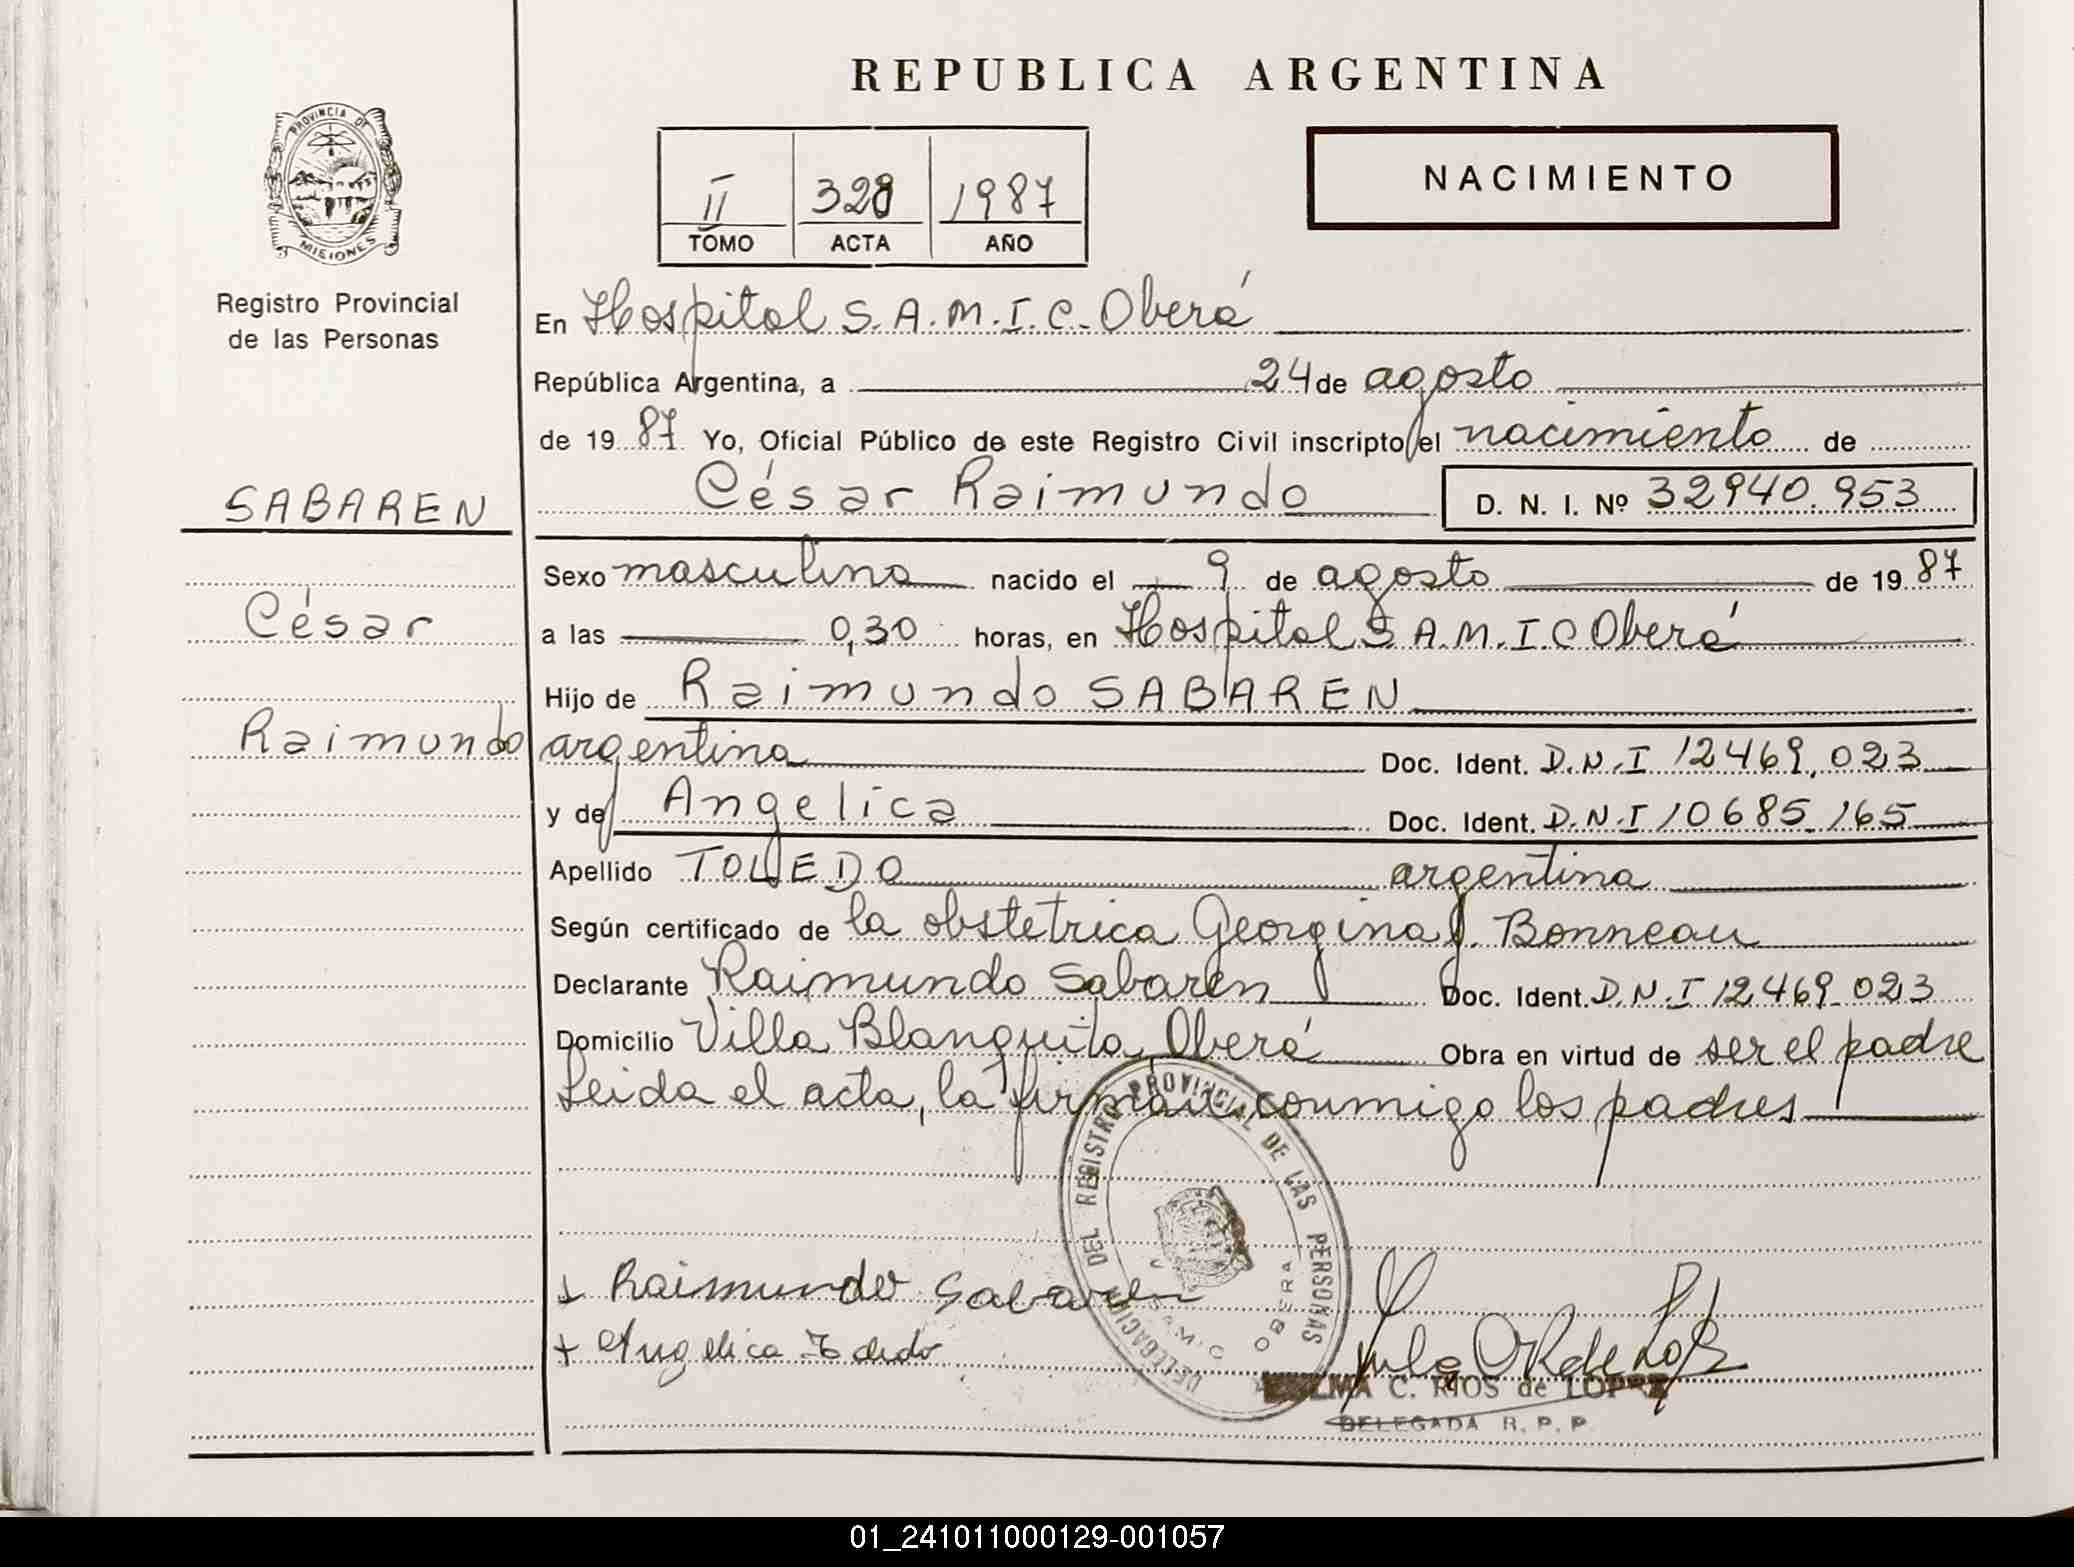 REPUBLICA ARGENTINA
PROVINCIA DE
MISIONES
Registro Provincial
de las Personas
II 328 1987
TOMO ACTA AÑO
NACIMIENTO
En Hospital S.A.M.I.C. Oberá
República Argentina, a 24 de agosto
de 19 87 Yo, Oficial Público de este Registro Civil inscripto el nacimiento de
César Raimundo D. N. I. Nº 32940.953
SABAREN
César
Raimundo
Sexo masculino nacido el 9 de agosto de 19 87
a las 0,30 horas, en Hospital S.A.M.I.C Oberá
Hijo de Raimundo SABAREN
argentina Doc. Ident. D.N.I 12469.023
y de Angelica Doc. Ident. D.N.I 10685.165
Apellido TOLEDO argentina
Según certificado de la obstetrica Georgina J. Bonneau
Declarante Raimundo Sabaren Doc. Ident. D.N.I 12469.023
Domicilio Villa Blanquita, Oberá Obra en virtud de ser el padre
Leida el acta, la firman conmigo los padres
DELEGACION DEL REGISTRO PROVINCIAL DE LAS PERSONAS
SAMIC OBERA
+ Raimundo Sabaren
+ Angelica Toledo
C. RIOS de LOPEZ
DELEGADA R. P. P.
01_241011000129-001057